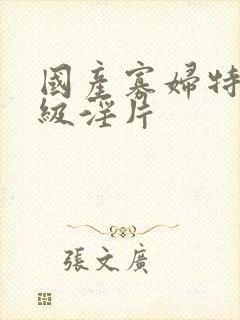 國產寡婦特
級淫片
張文廣